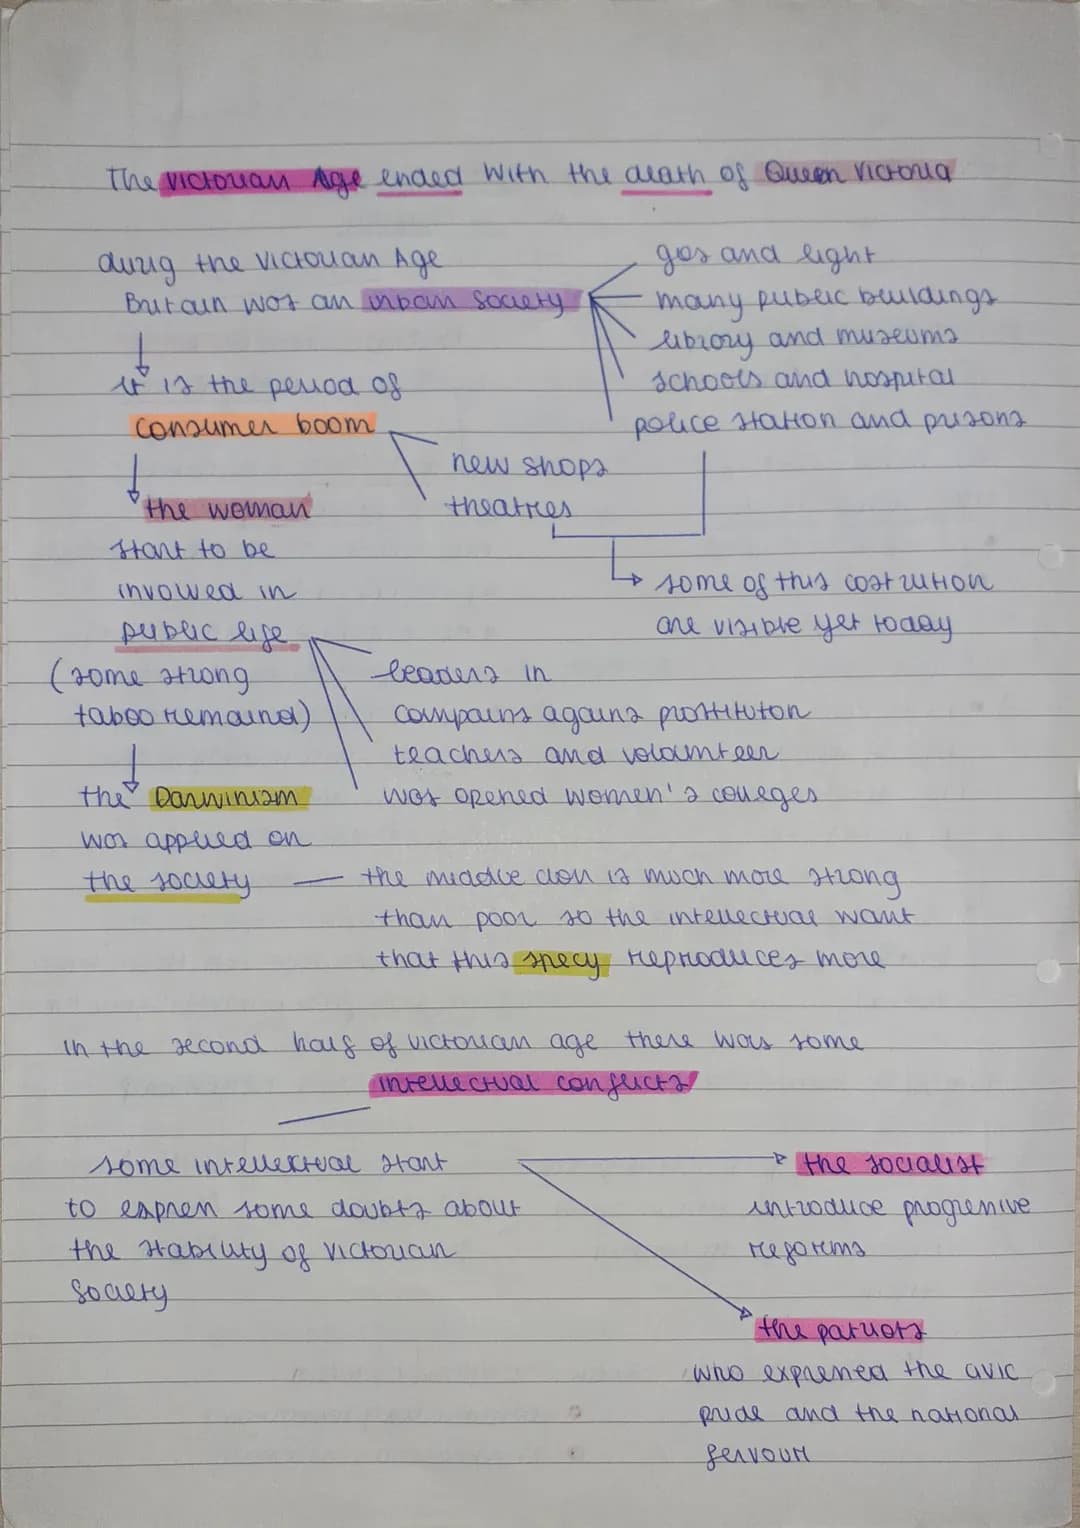 The Victorian Age ended with the death of Queen Victoria
durig the Victorian Age
Britain was an urban society
gas and light
many public buildings
library and museums
schools and hospital
police station and prisons
it is the period of
consumer boom
new shops
theatres
some of this costrution
are visible yet today
the woman
start to be
involved in
public life
(some strong
taboo remaind)
leaders in
campains agains prostituton
teachers and volounteer
was opened women's colleges
the Darwinism
was applied on
the society
the middle class is much more strong
than poor so the intellectual want
that this specy reproduces more
in the second half of victorian age there was some
intellectual conflicts
some intellectual start
to express some doubts about
the stability of victorian
society
the socialist
introduce progressive
reforms
the patriots
who expressed the civic
pride and the national
fervour